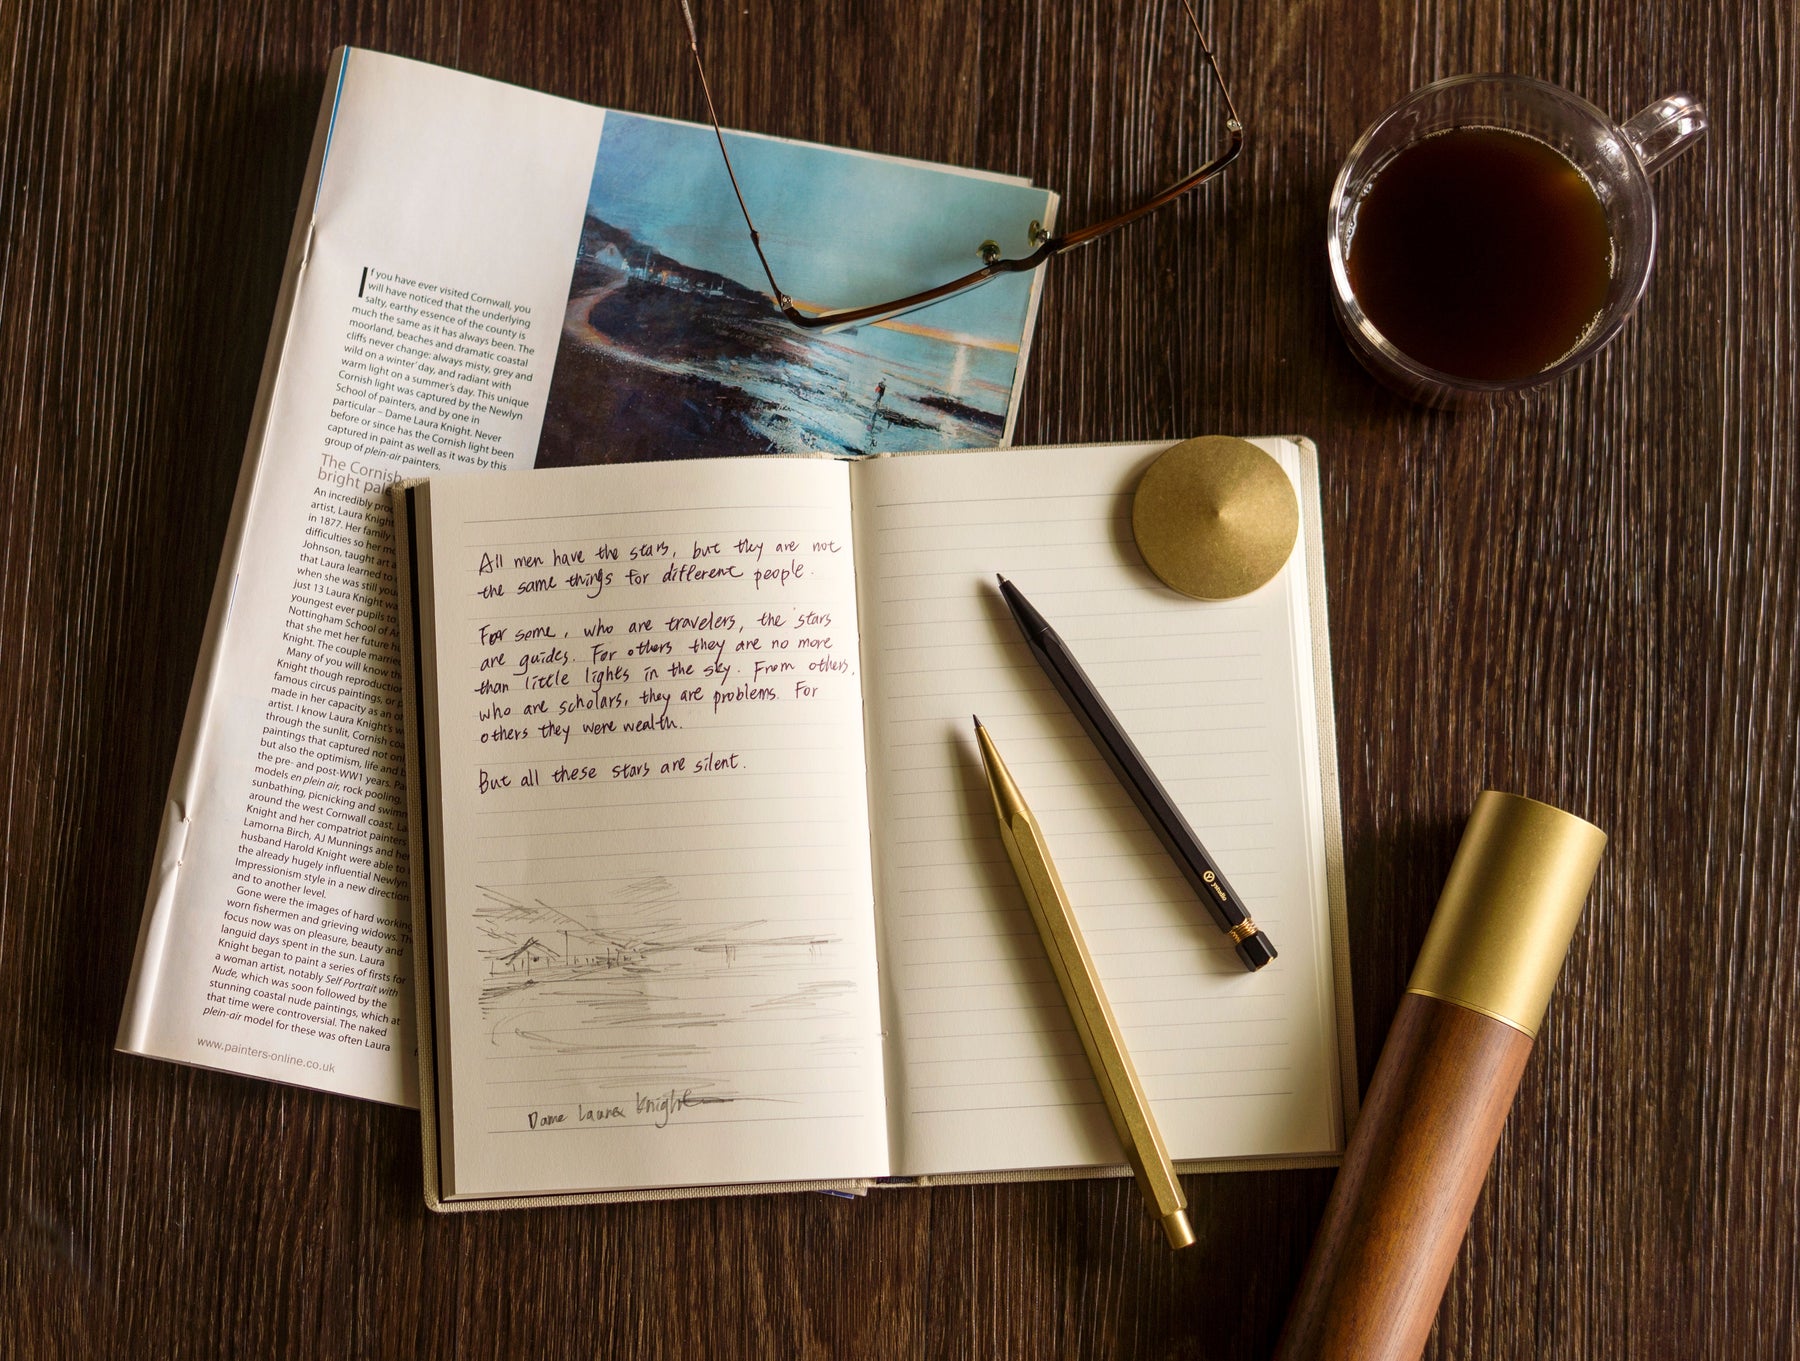 If you have ever visited Cornwall, you
will have noticed that the underlying
salty, earthy essence of the county is
much the same as it has always been. The
moorland, beaches and dramatic coastal
cliffs never change: always misty, grey and
wild on a winter' day, and radiant with
warm light on a summer's day. This unique
Cornish light was captured by the Newlyn
School of painters, and by one in
particular – Dame Laura Knight. Never
before or since has the Cornish light been
captured in paint as well as it was by this
group of plein-air painters.
The Cornish
bright
An incredibly
artist, Laura Knight
in 1877. Her family
difficulties so her
Johnson, taught art
that Laura learned to
when she was still
just 13 Laura Knight
youngest ever pupils
Nottingham School of
that she met her future
Knight. The couple married
Many of you will know
Knight though
famous circus paintings, or
made in her capacity as an
artist. I know Laura Knight's
through the sunlit, Cornish
paintings that captured not
but also the optimism, life and
the pre- and post-WW1 years.
models en plein air, rock pooling,
sunbathing, picnicking and
around the west Cornwall coast,
Knight and her compatriot painters
Lamorna Birch, AJ Munnings and her
husband Harold Knight were able to
the already hugely influential Newlyn
Impressionism style in a new direction
and to another level.
Gone were the images of hard working
worn fishermen and grieving widows. The
focus now was on pleasure, beauty and
languid days spent in the sun. Laura
Knight began to paint a series of firsts for
a woman artist, notably Self Portrait with
Nude, which was soon followed by the
stunning coastal nude paintings, which at
that time were controversial. The naked
plein-air model for these was often Laura
www.painters-online.co.uk
All men have the stars, but they are not
the same things for different people.
For some, who are travelers, the stars
are guides. For others they are no more
than little lights in the sky. From others,
who are scholars, they are problems. For
others they were wealth.
But all these stars are silent.
Dame Laura Knight
ystudio